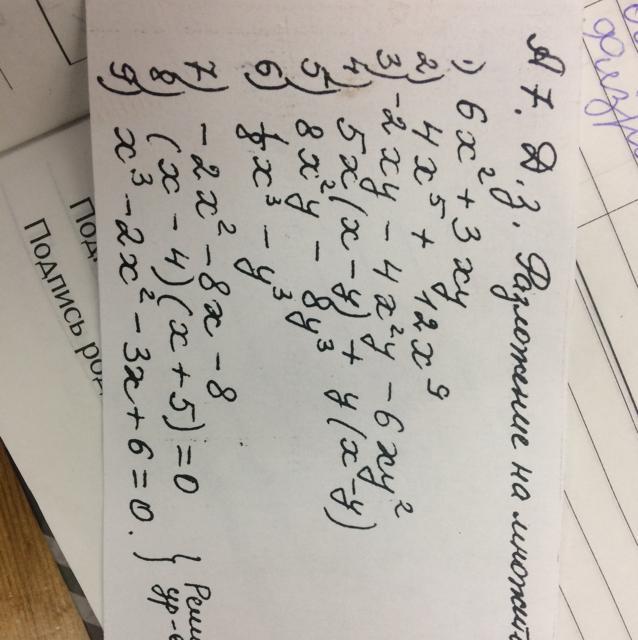 А 7. Д.з. Разложение на множит
1) 6x² + 3xy
2) 4x⁵ + 12x⁹
3) -2xy - 4x²y - 6xy²
4) 5x(x - y) + y(x - y)
5) 8x²y - 8y³
6) x³ - y³
7) -2x² - 8x - 8
8) (x - 4)(x + 5) = 0
9) x³ - 2x² - 3x + 6 = 0. } Реш
ур-
Подпись ро
Под